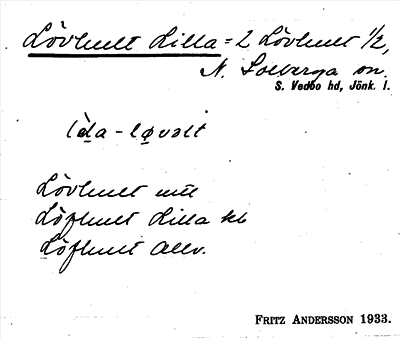 Lövhult Lilla = 2 Lövhult 1/2,
N. Solberga sn.
S. Vedbo hd, Jönk. l.
lı̀da - løvəlt
Lövhult
Löfhult Lilla
Löfhult
FRITZ ANDERSSON 1933.